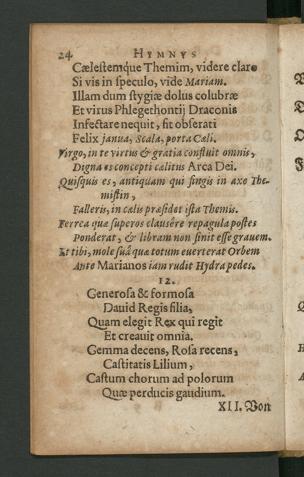 24 HYMNVS
Cælestemque Themim, videre clare
Si vis in speculo, vide Mariam.
Illam dum stygiæ dolus colubræ
Et virus Phlegethontij Draconis
Infectare nequit, fit obserati
Felix janua, Scala, porta Cæli.
Virgo, in te virtus & gratia confluit omnis,
Digna es concepti cælitus Arca Dei.
Quisquis es, antiquam qui fingis in axe The-
mistin,
Falleris, in cælis præsidet ista Themis.
Ferrea quæ superos clausêre repagula postes
Ponderat, & libram non sinit esse gravem.
Et tibi, mole suâ quæ totum everterat Orbem
Ante Marianos iam rudit Hydra pedes.
12.
Generosa & formosa
Dauid Regis filia,
Quam elegit Rex qui regit
Et creauit omnia.
Gemma decens, Rosa recens,
Castitatis Lilium,
Castum chorum ad polorum
Quæ perducis gaudium.
XII. Von